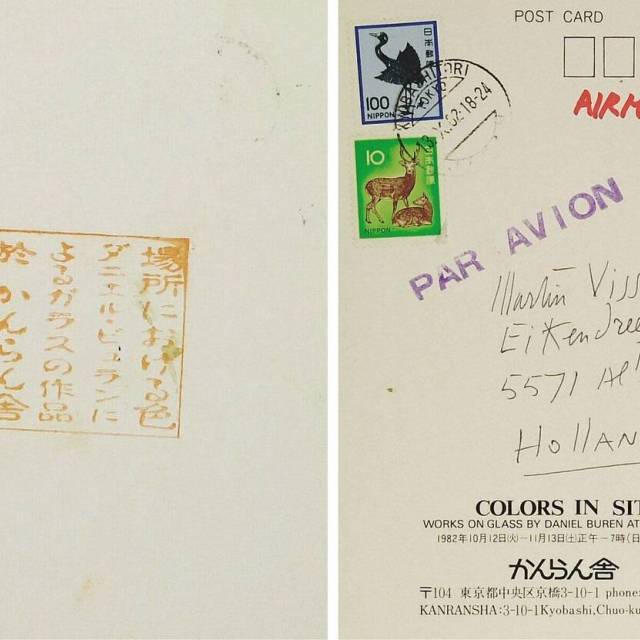 場所における色
ダニエル・ビュランに
よるガラスの作品
於 かんらん舎
POST CARD
日本郵便
100
NIPPON
TOKYO
82.18-24
10
日本郵便
NIPPON
PAR AVION
Martin
5571
HOLLAN
COLORS IN
WORKS ON GLASS BY DANIEL BUREN AT
1982年10月12日(火)―11月13日(土)正午―7時(日
かんらん舎
〒104 東京都中央区京橋3-10-1 phone
KANRANSHA: 3-10-1 Kyobashi, Chuo-ku